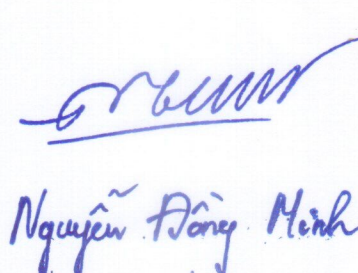 Nguyễn Đông Minh